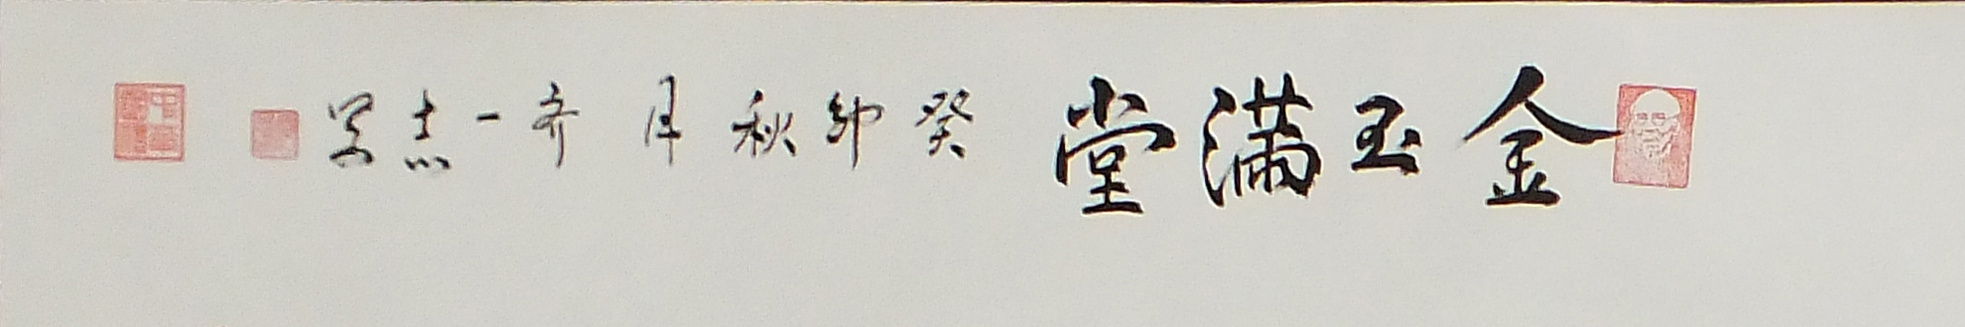 金玉满堂 癸卯秋月 齐一杰写